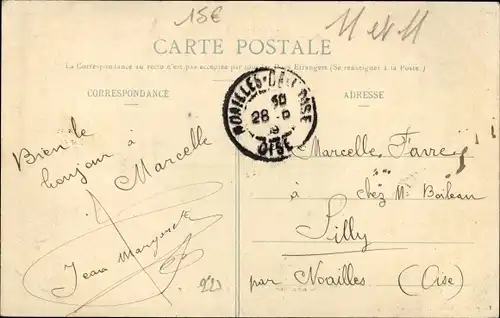 15€
M et M
CARTE POSTALE
La Correspondance au recto n'est pas acceptée par tous les Pays Etrangers (Se renseigner à la Poste)
CORRESPONDANCE
ADRESSE
NOAILLES
28
OISE
Bien le
bonjour à
Marcelle
Jean
Marcelle Favre
à chez Mr Boileau
Silly
par Noailles (Oise)